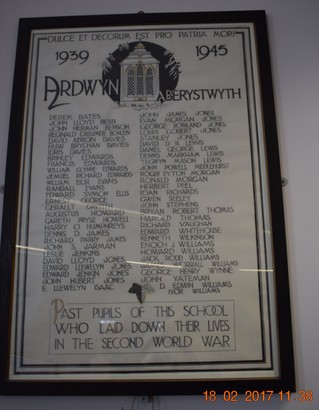 DULCE ET DECORUM EST PRO PATRIA MORI
1939 1945
ARDWYN ABERYSTWYTH
DEREK BATES
JOHN LLOYD BEBB
JOHN HERMAN BENSON
DAVID AERON DAVIES
HUW BRYCHAN DAVIES
IORIS DAVIES
BRINLEY EDWARDS
FRANCIS EDWARDS
WILLIAM GLYNNE EDWARDS
SAMUEL RICHARD EDWARDS
WILLIAM ELIR EVANS
RANDALL EVANS
EDWARD SYMON ELLIS
ERNEST GEORGE
GERALD
AUGUSTUS HOWARD
GARETH PRYSE HOWELL
HARRY O. HUMPHREYS
DENNIS D. JAMES
RICHARD PARRY JAMES
JOHN S. JARMAN
LESLIE JENKINS
DAVID LLOYD JONES
EDWARD LLEWELYN JONES
EDWARD JENKIN JONES
JOHN HUBERT JONES
E. LLEWELYN ISAAC
JOHN JAMES JONES
EVAN MORGAN JONES
GEORGE ROWLAND JONES
LEWIS GORBET JONES
STANLEY JONES
DAVID D. R. LEWIS
DANIEL GEORGE LEWIS
DENNIS MARKHAM LEWIS
TEGRYN MASON LEWIS
JOHN POWELL MEDLEHURST
ROGER EYTON MORGAN
RONALD MORGAN
HERBERT PEEL
IOAN RICHARDS
GWEN SEELEY
JOHN STEPHENS
BRYAN ROBERT THOMAS
HAROLD THOMAS
RICHARD VAUGHAN
EDWARD WHITEHOUSE
KENNETH WILKINSON
ENOCH J. WILLIAMS
HOWARD WILLIAMS
JACK RODD WILLIAMS
WORRALL WILLIAMS
GEORGE HENRY WYNNE
JOHN YATEMAN
D. EDWIN WILLIAMS
IVOR WILLIAMS
PAST PUPILS OF THIS SCHOOL
WHO LAID DOWN THEIR LIVES
IN THE SECOND WORLD WAR
18 02 2017 11:38